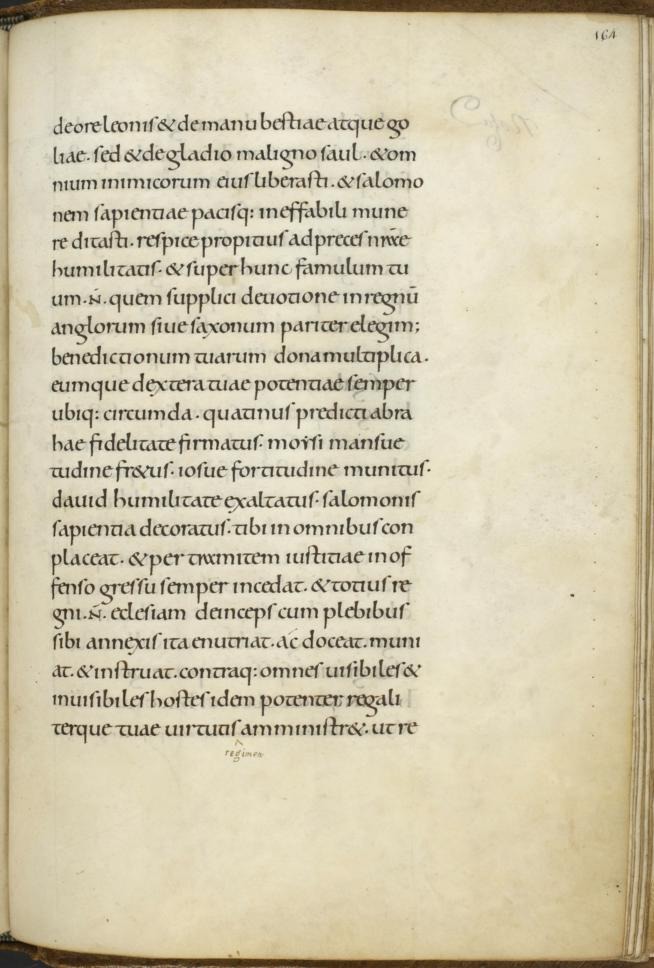 164
de ore leonis & de manu bestiae atque go
liae. sed & de gladio maligno saul. & om
nium inimicorum eius liberasti. & salomo
nem sapientiae pacisq: ineffabili mune
re ditasti. respice propitius ad preces nr̄ae
humilitatis. & super hunc famulum tu
um .N̄. quem supplici deuotione in regnū
anglorum siue saxonum pariter elegim;
benedictionum tuarum dona multiplica.
eumque dextera tuae potentiae semper
ubiq: circumda. quatinus predicti abra
hae fidelitate firmatus. moẏsi mansue
tudine fr&us. iosue fortitudine munitus.
dauid humilitate exaltatus. salomonis
sapientia decoratus. tibi in omnibus con
placeat. & per tramitem iustitiae in of
fenso gressu semper incedat. & totius re
gni .N̄. eclesiam deinceps cum plebibus
sibi annexis ita enutriat. ac̄ doceat. muni
at. & instruat. contraq: omnes uisibiles &
inuisibiles hostes idem potenter regali
terque tuae uirtutis amministr&. ut re
regimen